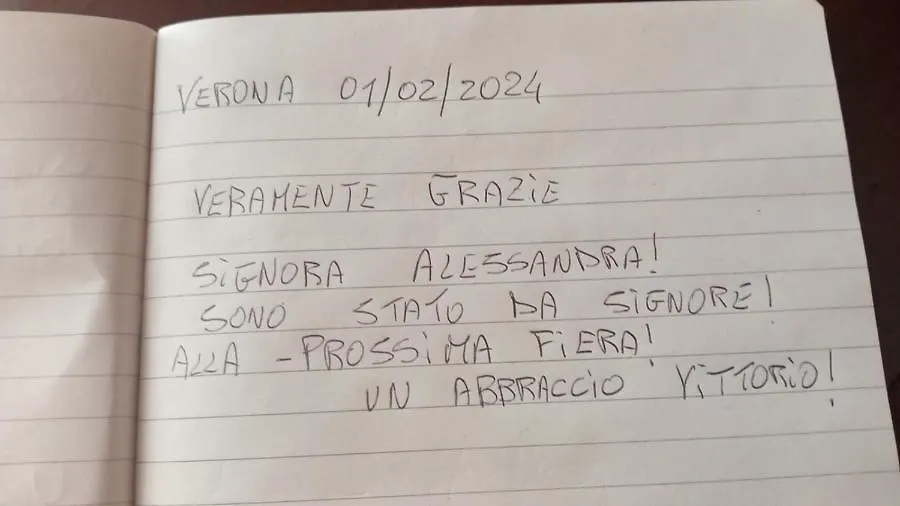 VERONA 01/02/2024
VERAMENTE GRAZIE
SIGNORA ALESSANDRA!
SONO STATO DA SIGNORE!
ALLA - PROSSIMA FIERA!
UN ABBRACCIO VITTORIO!